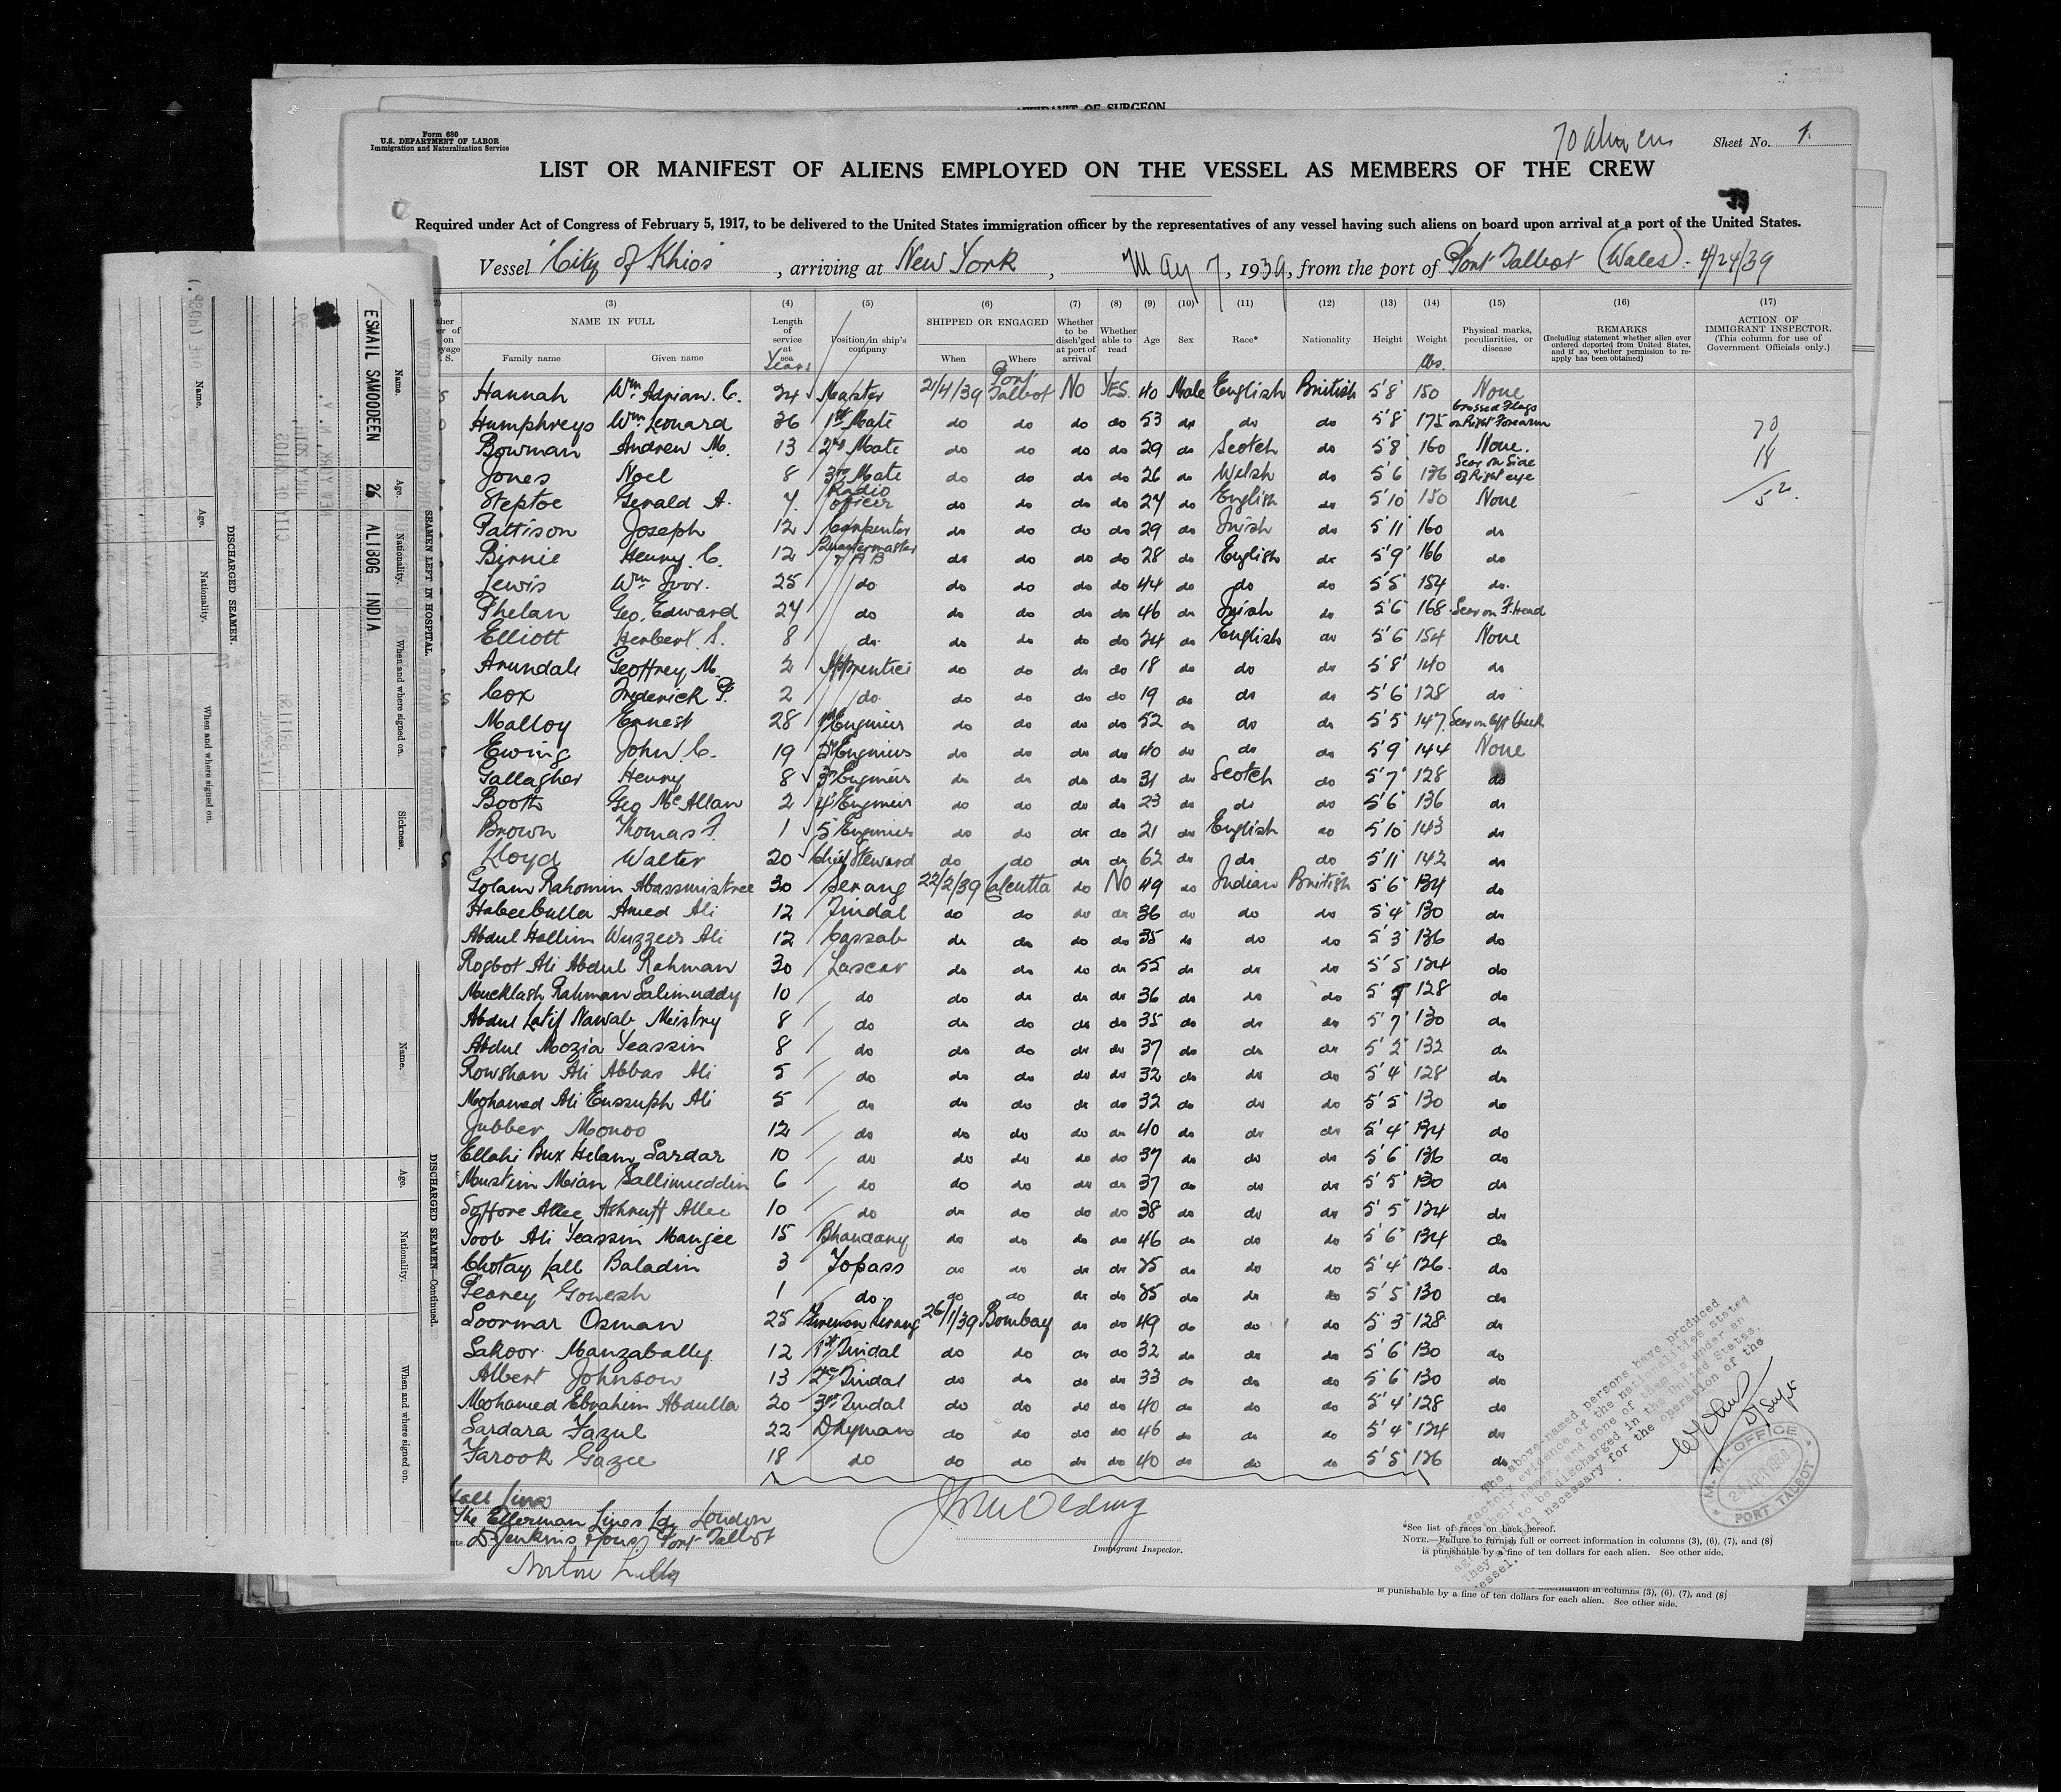 AFFIDAVIT OF SURGEON
Form 680
U.S. DEPARTMENT OF LABOR
Immigration and Naturalization Service
Sheet No. 1.
LIST OR MANIFEST OF ALIENS EMPLOYED ON THE VESSEL AS MEMBERS OF THE CREW
Required under Act of Congress of February 5, 1917, to be delivered to the United States immigration officer by the representatives of any vessel having such aliens on board upon arrival at a port of the United States.
Vessel "City of Khios", arriving at New York, May 7, 1939, from the port of Port Talbot (Wales). 4/24/39
(3) (4) (5) (6) (7) (8) (9) (10) (11) (12) (13) (14) (15) (16) (17)
NAME IN FULL Family name Given name
Length of service at sea Years
Position in ship's company
SHIPPED OR ENGAGED When Where
Whether to be disch'ged at port of arrival
Whether able to read
Age
Sex
Race*
Nationality
Height
Weight lbs.
Physical marks, peculiarities, or disease
REMARKS (Including statement whether alien ever ordered deported from United States, and if so, whether permission to reapply has been obtained)
ACTION OF IMMIGRANT INSPECTOR. (This column for use of Government Officials only.)
Hannah Wm. Adrian. C. 24 Master 21/4/39 Port Talbot No YES. 40 Male English British 5'8" 150 None
Humphreys Wm Leonard 36 1st Mate do do do do 53 do do do 5'8" 175 Crossed Flags on Right Forearm
Bowman Andrew M. 13 2nd Mate do do do do 29 do Scotch do 5'8" 160 None.
Jones Noel 8 3rd Mate do do do do 26 do Welsh do 5'6" 136 Scar on Side of Right eye
Steptoe Gerald A. 7 Radio officer do do do do 27 do English do 5'10" 150 None
Pattison Joseph 12 Carpenter do do do do 29 do Irish do 5'11" 160 do
Birnie Henry. C. 12 Quartermaster & AB do do do do 28 do English do 5'9" 166 do
Lewis Wm Ivor. 25 do do do do do 44 do do do 5'5" 154 do.
Phelan Geo. Edward 27 do do do do do 46 do Irish do 5'6" 168 Scar on F.Head
Elliott Herbert S. 8 do do do do do 24 do English do 5'6" 154 None
Arundale Geoffrey M. 2 Apprentice do do do do 18 do do do 5'8" 140 do
Cox Frederick P. 2 do. do do do do 19 do do do 5'6" 128 do
Malloy Ernest 28 1st Engineer do do do do 52 do do do 5'5" 147 Scar on left Cheek
Ewing John. C. 19 2nd Engineer do do do do 40 do do do 5'9" 144 None
Gallagher Henry 8 3rd Engineer do do do do 31 do Scotch do 5'7" 128 do
Booth Geo McAllan 2 4th Engineer do do do do 23 do do do 5'6" 136 do
Brown Thomas F. 1 5 Engineer do do do do 21 do English do 5'10" 143 do
Lloyd Walter 20 Chief Steward do do do do 62 do do do 5'11" 142 do
Golam Rahomin Abassmistree 30 Serang 22/2/39 Calcutta do No 49 do Indian British 5'6" 134 do
Habeebulla Amed Ali 12 Tindal do do do do 36 do do do 5'4" 130 do
Abdul Hallim Wuzzeer Ali 12 Cassab do do do do 35 do do do 5'3" 136 do
Rogbot Ali Abdul Rahman 30 Lascar do do do do 55 do do do 5'5" 134 do
Mucklash Rahman Salimuddy 10 do do do do do 36 do do do 128 do
Abdul Latif Nawab Meistry 8 do do do do do 35 do do do 5'7" 130 do
Abdul Mozia Yeassin 8 do do do do do 37 do do do 5'2" 132 do
Rowshan Ali Abbas Ali 5 do do do do do 32 do do do 5'4" 128 do
Mohamed Ali Eussuph Ali 5 do do do do do 32 do do do 5'5" 130 do
Jubber Monoo 12 do do do do do 40 do do do 5'4" 134 do
Ellahi Bux Helam Sardar 10 do do do do do 37 do do do 5'6" 136 do
Mustim Mian Sallimuddin 6 do do do do do 37 do do do 5'5" 130 do
Soffore Allee Ashruff Allee 10 do do do do do 38 do do do 5'5" 134 do
Toob Ali Yeassin Manjee 15 Bhandary do do do do 46 do do do 5'6" 134 do
Chotay Lall Baladin 3 Topass do do do do 35 do do do 5'4" 126 do
Pearey Gonesh 1 do. do do do do 35 do do do 5'5" 130 do
Soormar Osman 25 Fireman Serang 26/1/39 Bombay do do 49 do do do 5'3" 128 do
Sakoor Manzabally 12 1st Tindal do do do do 32 do do do 5'6" 130 do
Albert Johnson 13 2nd Tindal do do do do 33 do do do 5'6" 130 do
Mohamed Ebrahim Abdulla 20 3rd Tindal do do do do 40 do do do 5'4" 128 do
Sardara Fazul 22 do do do do 46 do do do 5'4" 134 do
Farook Gazee 18 do do do do do 40 do do do 5'5" 136 do
70
18
52.
Hall Line
The Ellerman Lines Ld, London
D Jenkins Port Talbot
Norton Lilly
Immigrant Inspector.
*See list of races on back hereof.
NOTE.—Failure to furnish full or correct information in columns (3), (6), (7), and (8)
is punishable by a fine of ten dollars for each alien. See other side.
information in columns (3), (6), (7), and (8)
is punishable by a fine of ten dollars for each alien. See other side.
The above-named persons have produced
satisfactory evidence of the nationalities stated
against their names, and none of them is under an
agreement to be discharged in the United States.
They are all necessary for the operation of the
vessel.
M. M. OFFICE
24 APR 1939
PORT TALBOT
ESMAIL SAMOODEEN 26 ALIBOG INDIA
SEAMEN LEFT IN HOSPITAL.
Name. Age. Nationality. When and where signed on. Sickness.
DISCHARGED SEAMEN.
Name. Age. Nationality. When and where signed on.
DISCHARGED SEAMEN—Continued.
Name. Age. Nationality. When and where signed on.